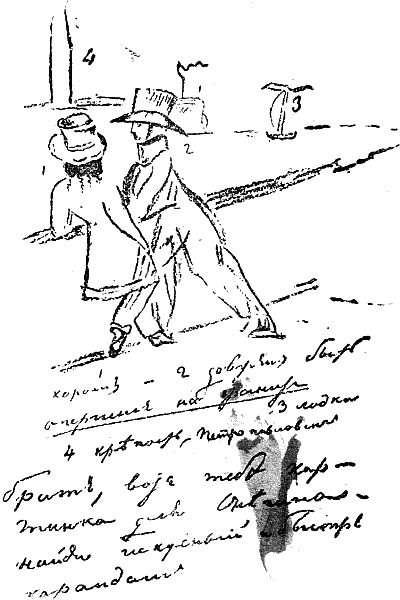 4
3
2
1
хорошъ – 2 долженъ быть
опершися на гранитъ
3 лодка
4 крѣпость, Петропавловская
братъ, вотъ тебѣ кар–
тинка для Онѣгина –
найди искусный и быстрый
карандашъ